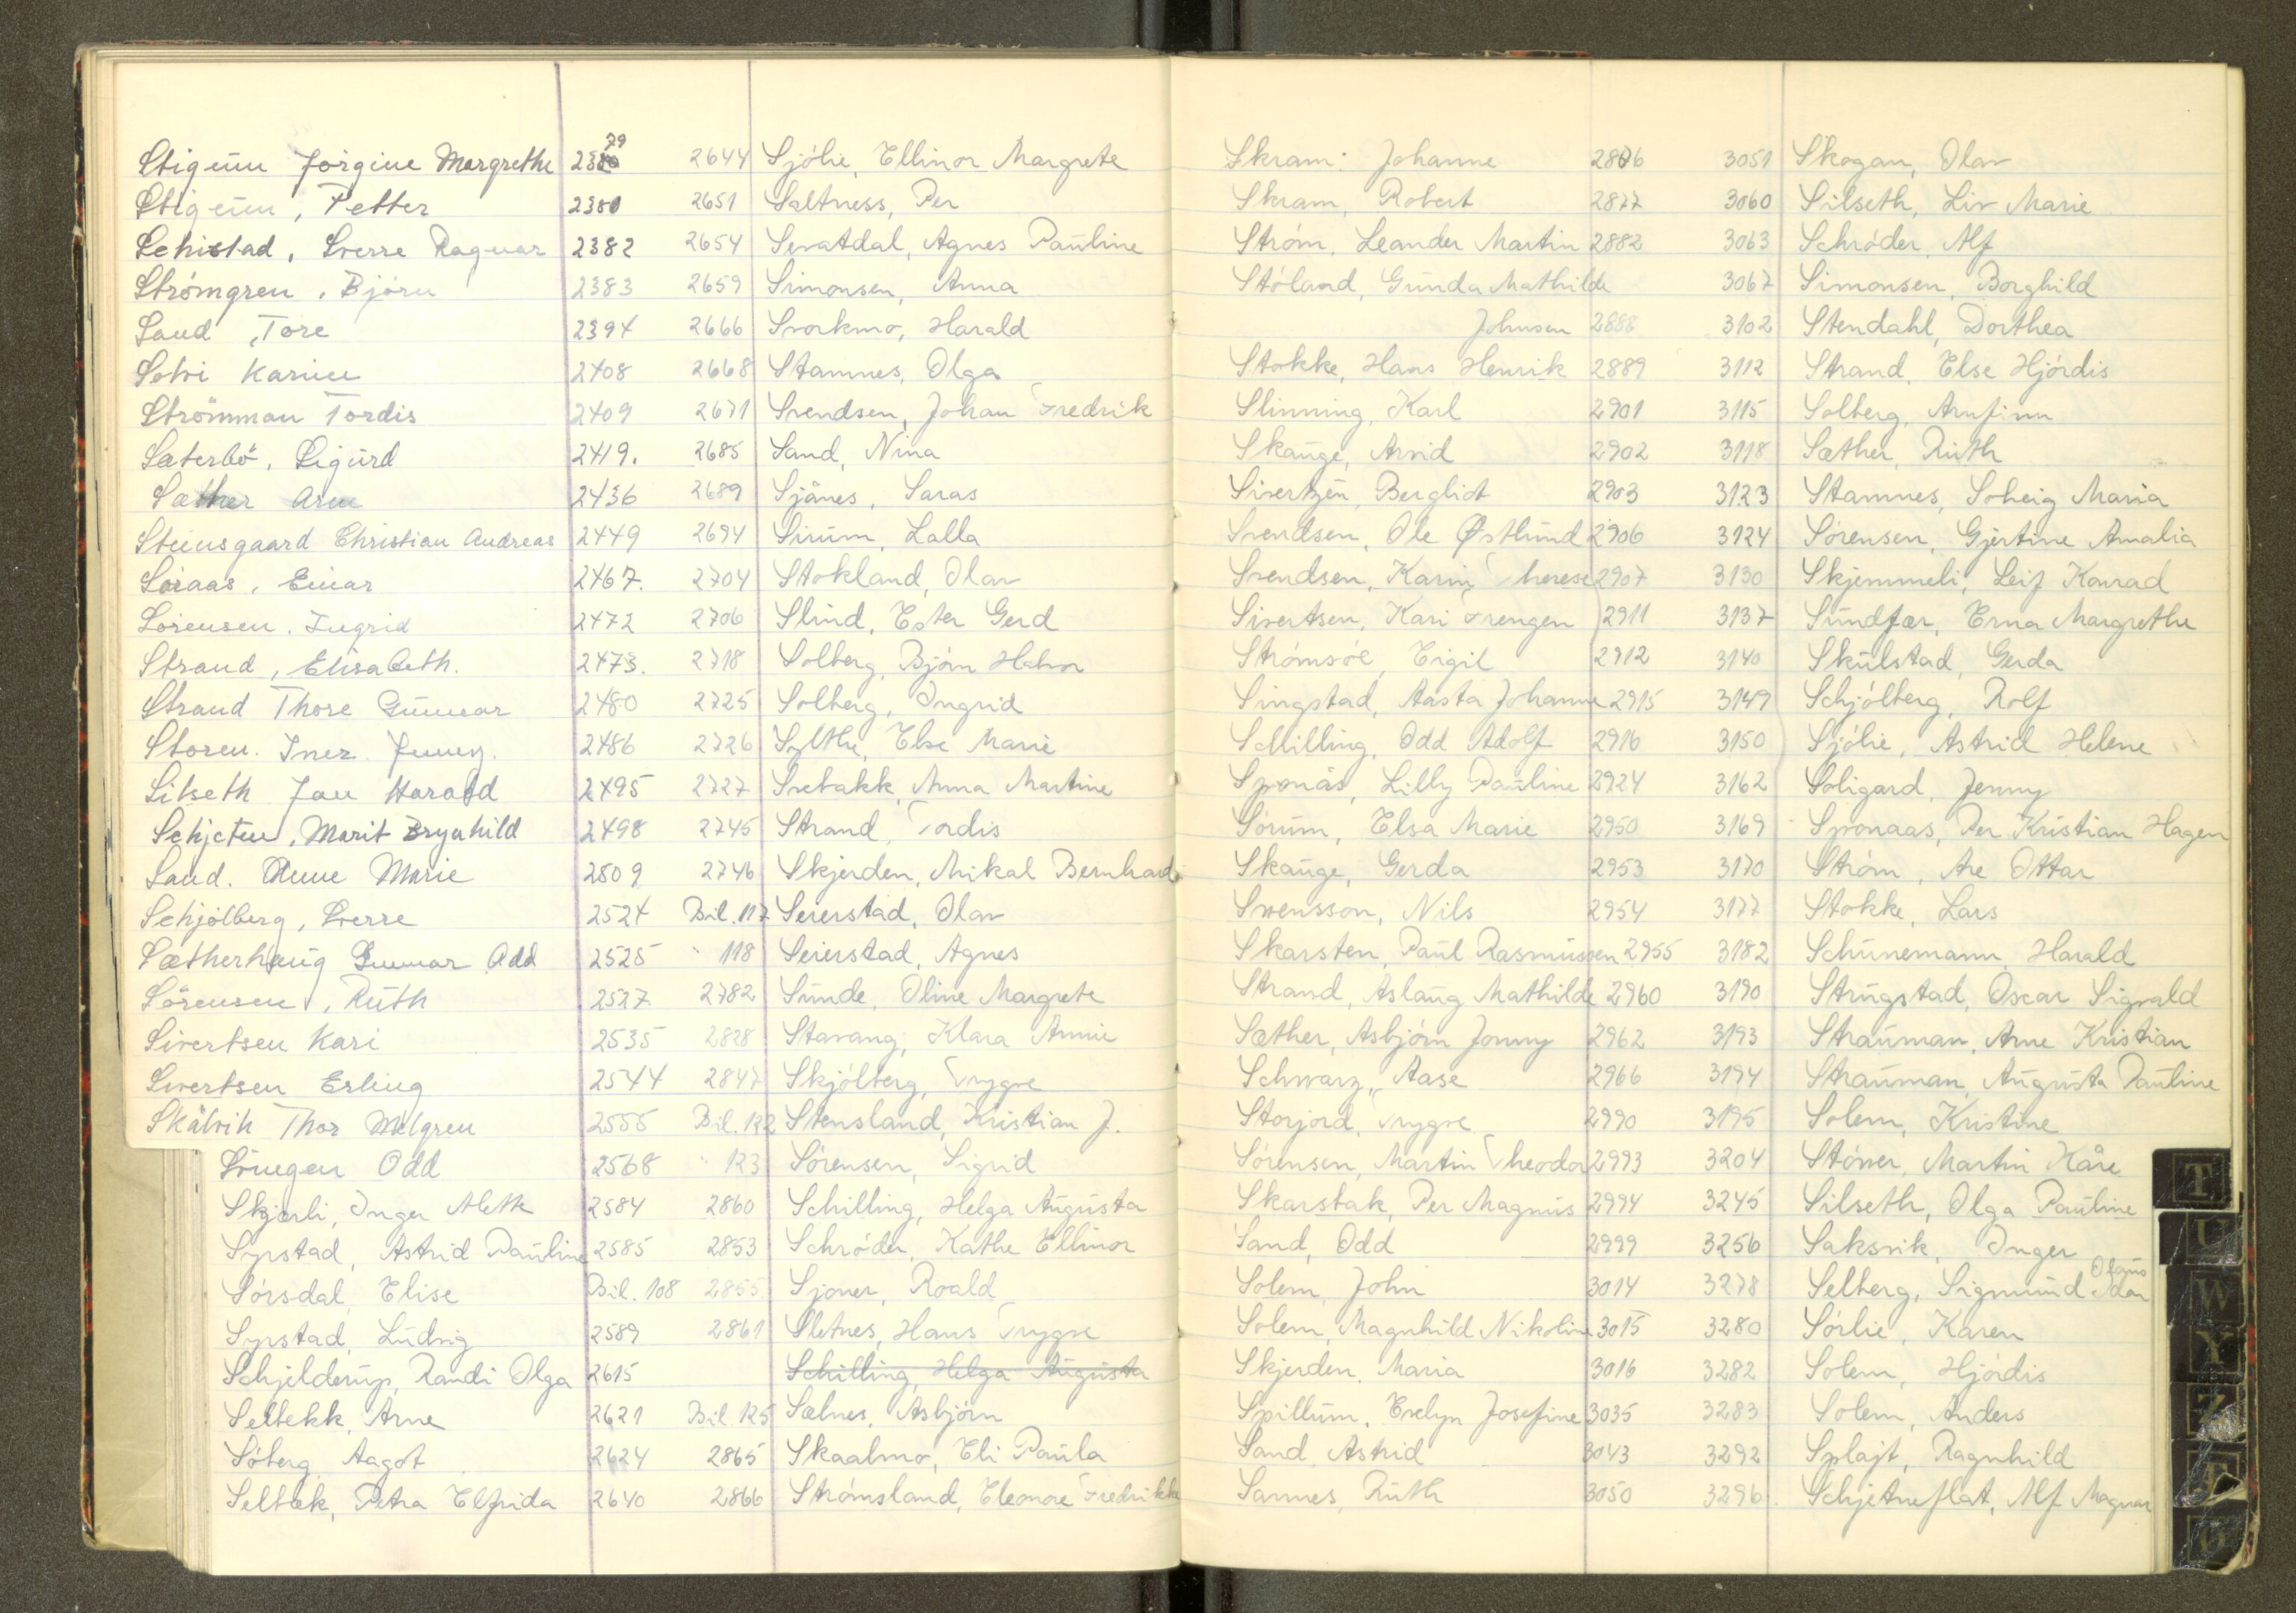 Stigum Jørgine Margrethe 2379
Stigum, Petter 2380
Schistad, Sverre Ragnar 2382
Strømgren, Bjørn 2383
Sand, Tore 2394
Karine 2408
Strömman Tordis 2409
Sæterbö, Sigurd 2419.
Sæther Arne 2436
Steinsgaard Christian Andreas 2449
Søraas, Einar 2467.
Sørensen. Ingrid 2472
Strand, Elisabeth. 2473.
Strand Thore Gunnar 2480
Storen. Inez. Jenny. 2486
Silseth Jan Harald 2495
Schjetne, Marit Brynhild 2498
Sand. Anne Marie 2509
Schjølberg, Sverre 2524
Sætherhaug Gunnar Odd 2525
Sörensen, Ruth 2527
Sivertsen Kari 2535
Sivertsen Erling 2544
Skålvik Thor Melgren 2555
Odd 2568
Inger Mette 2584
Syrstad, Astrid Pauline 2585
Sørsdal, Elise Bil. 108
Syrstad, Ludvig 2589
Schjelderup, Randi Olga 2615
Selbekk, Arne 2621
Søberg, Aagot 2624
Selbæk, Petra Elfrida 2640
2644 Sjølie, Ellinor Margrete
2651 Saltness, Per
2654 Sevatdal, Agnes Pauline
2659 Simonsen, Anna
2666 Svorkmo, Harald
2668 Stamnes, Olga
2671 Svendsen, Johan Fredrik
2685 Sand, Nina
2689 Sjånes, Saras
2694 Sirum, Lalla
2704 Stokland, Olav
2706 Slind, Ester Gerd
2718 Solberg, Bjørn Halvor
2725 Solberg, Ingrid
2726 Sylthe, Else Marie
2727 Svebakk, Anna Martine
2745 Strand, Tordis
2746 Skjerden, Mikal Bernhard
Bil. 117 Seierstad, Olav
" 118 Seierstad, Agnes
2782 Sunde, Oline Margrete
2828 Stavang, Klara Annie
2847 Skjølberg, Trygve
Bil. 122 Stensland, Kristian J.
" 123 Sørensen, Sigrid
2860 Schilling, Helga Augusta
2853 Schrøder, Kathe Ellinor
2855 Sjoner, Roald
2861 Sletnes, Hans Trygve
Schilling, Helga Augusta
Bil. 125 Sælnes, Asbjørn
2865 Skaalmo, Eli Paula
2866 Strømsland, Eleonore Fredrikke
Skram: Johanne 2876
Skram, Robert 2877
Strøm, Leander Martin 2882
Støland, Gunda Mathilde
Johnsen 2888
Stokke, Hans Henrik 2889
Slinning, Karl 2901
Skauge, Arvid 2902
Sivertzen, Bergliot 2903
Svendsen, Ole Østlund 2906
Svendsen, Karin Therese 2907
Sivertsen, Kari Frengen 2911
Strømsøe, Eigil 2912
Singstad, Aasta Johanne 2915
Schilling, Odd Adolf 2916
Sponås, Lilly Pauline 2924
Sørum, Elsa Marie 2950
Skauge, Gerda 2953
Swensson, Nils 2954
Skarsten, Paul Rasmussen 2955
Strand, Aslaug Mathilde 2960
Sæther, Asbjørn Jonny 2962
Schwarz, Aase 2966
Storjord, Trygve 2990
Sørensen, Martin Theodor 2993
Skarstak, Per Magnus 2994
Sand, Odd 2999
Solem, John 3014
Solem, Magnhild Nikoline 3015
Skjerden, Maria 3016
Spillum, Evelyn Josefine 3035
Sand, Astrid 3043
Sannes, Ruth 3050
3051 Skogan, Olav
3060 Silseth, Liv Marie
3063 Schrøder, Alf
3067 Simonsen, Borghild
3102 Stendahl, Dorthea
3112 Strand, Else Hjørdis
3115 Solberg, Arnfinn
3118 Sæther, Ruth
3123 Stamnes, Solveig Maria
3124 Sørensen, Gjertine Amalia
3130 Skjemmeli, Leif Konrad
3137 Sundfær, Erna Margrethe
3140 Skulstad, Gerda
3149 Schjølberg, Rolf
3150 Sjølie, Astrid Helene
3162 Soligard, Jenny
3169 Sponaas, Per Kristian Hagen
3170 Strøm, Are Ottar
3177 Stokke, Lars
3182 Schünemann, Harald
3190 Strugstad, Oscar Sigvald
3193 Strauman, Arne Kristian
3194 Strauman, Augusta Pauline
3195 Solem, Kristine
3204 Støver, Martin Kåre
3245 Silseth, Olga Pauline
3256 Saksvik, Inger
3278 Selberg, Sigmund Olaus
3280 Sørlie, Karen
3282 Solem, Hjørdis
3283 Solem, Anders
3292 Splajt, Ragnhild
3296 Schjetneflat, Alf Magnar
T
U
W
Y
Z